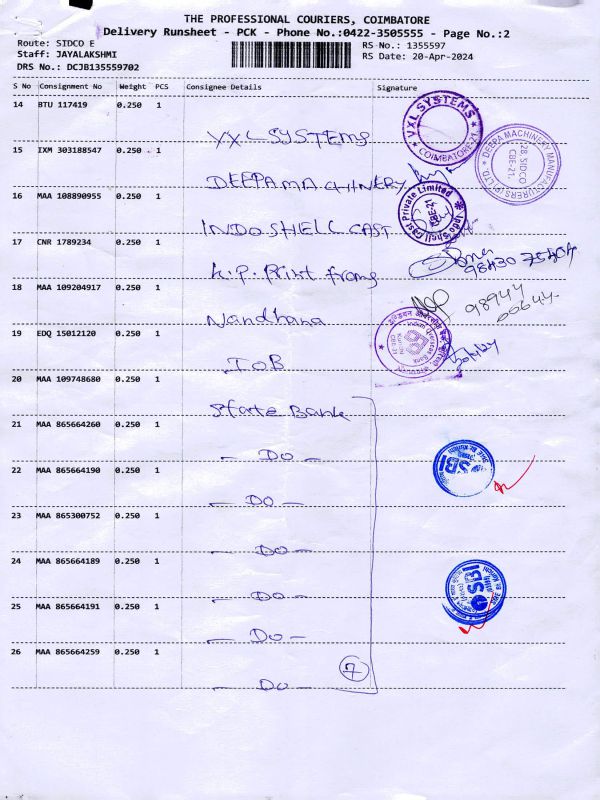 THE PROFESSIONAL COURIERS, COIMBATORE
Delivery Runsheet - PCK - Phone No.:0422-3505555 - Page No.:2
Route: SIDCO E
RS No.: 1355597
Staff: JAYALAKSHMI
RS Date: 20-Apr-2024
DRS No.: DCJB135559702
S No Consignment No Weight PCS Consignee Details Signature
14 BTU 117419 0.250 1
VXL SYSTEMS
VXL SYSTEMS
COIMBATORE-21
15 IXM 303188547 0.250 1
DEEPA MACHINERY
DEEPA MACHINERY MANUFACTURERS (P) LTD.
28, SIDCO
CBE-21.
16 MAA 108890955 0.250 1
INDO SHELL CAST
Indo Shell Cast Private Limited
CBE-21
17 CNR 1789234 0.250 1
K.P. Print frang
98430 75404
18 MAA 109204917 0.250 1
Nandhana
98944
00644
19 EDQ 15012120 0.250 1
IOB
Indian Overseas Bank
20 MAA 109748680 0.250 1
State Bank
21 MAA 865664260 0.250 1
- Do -
22 MAA 865664190 0.250 1
- Do -
SBI
23 MAA 865300752 0.250 1
- Do -
24 MAA 865664189 0.250 1
- Do -
SBI
25 MAA 865664191 0.250 1
- Do -
26 MAA 865664259 0.250 1
- Do -
7